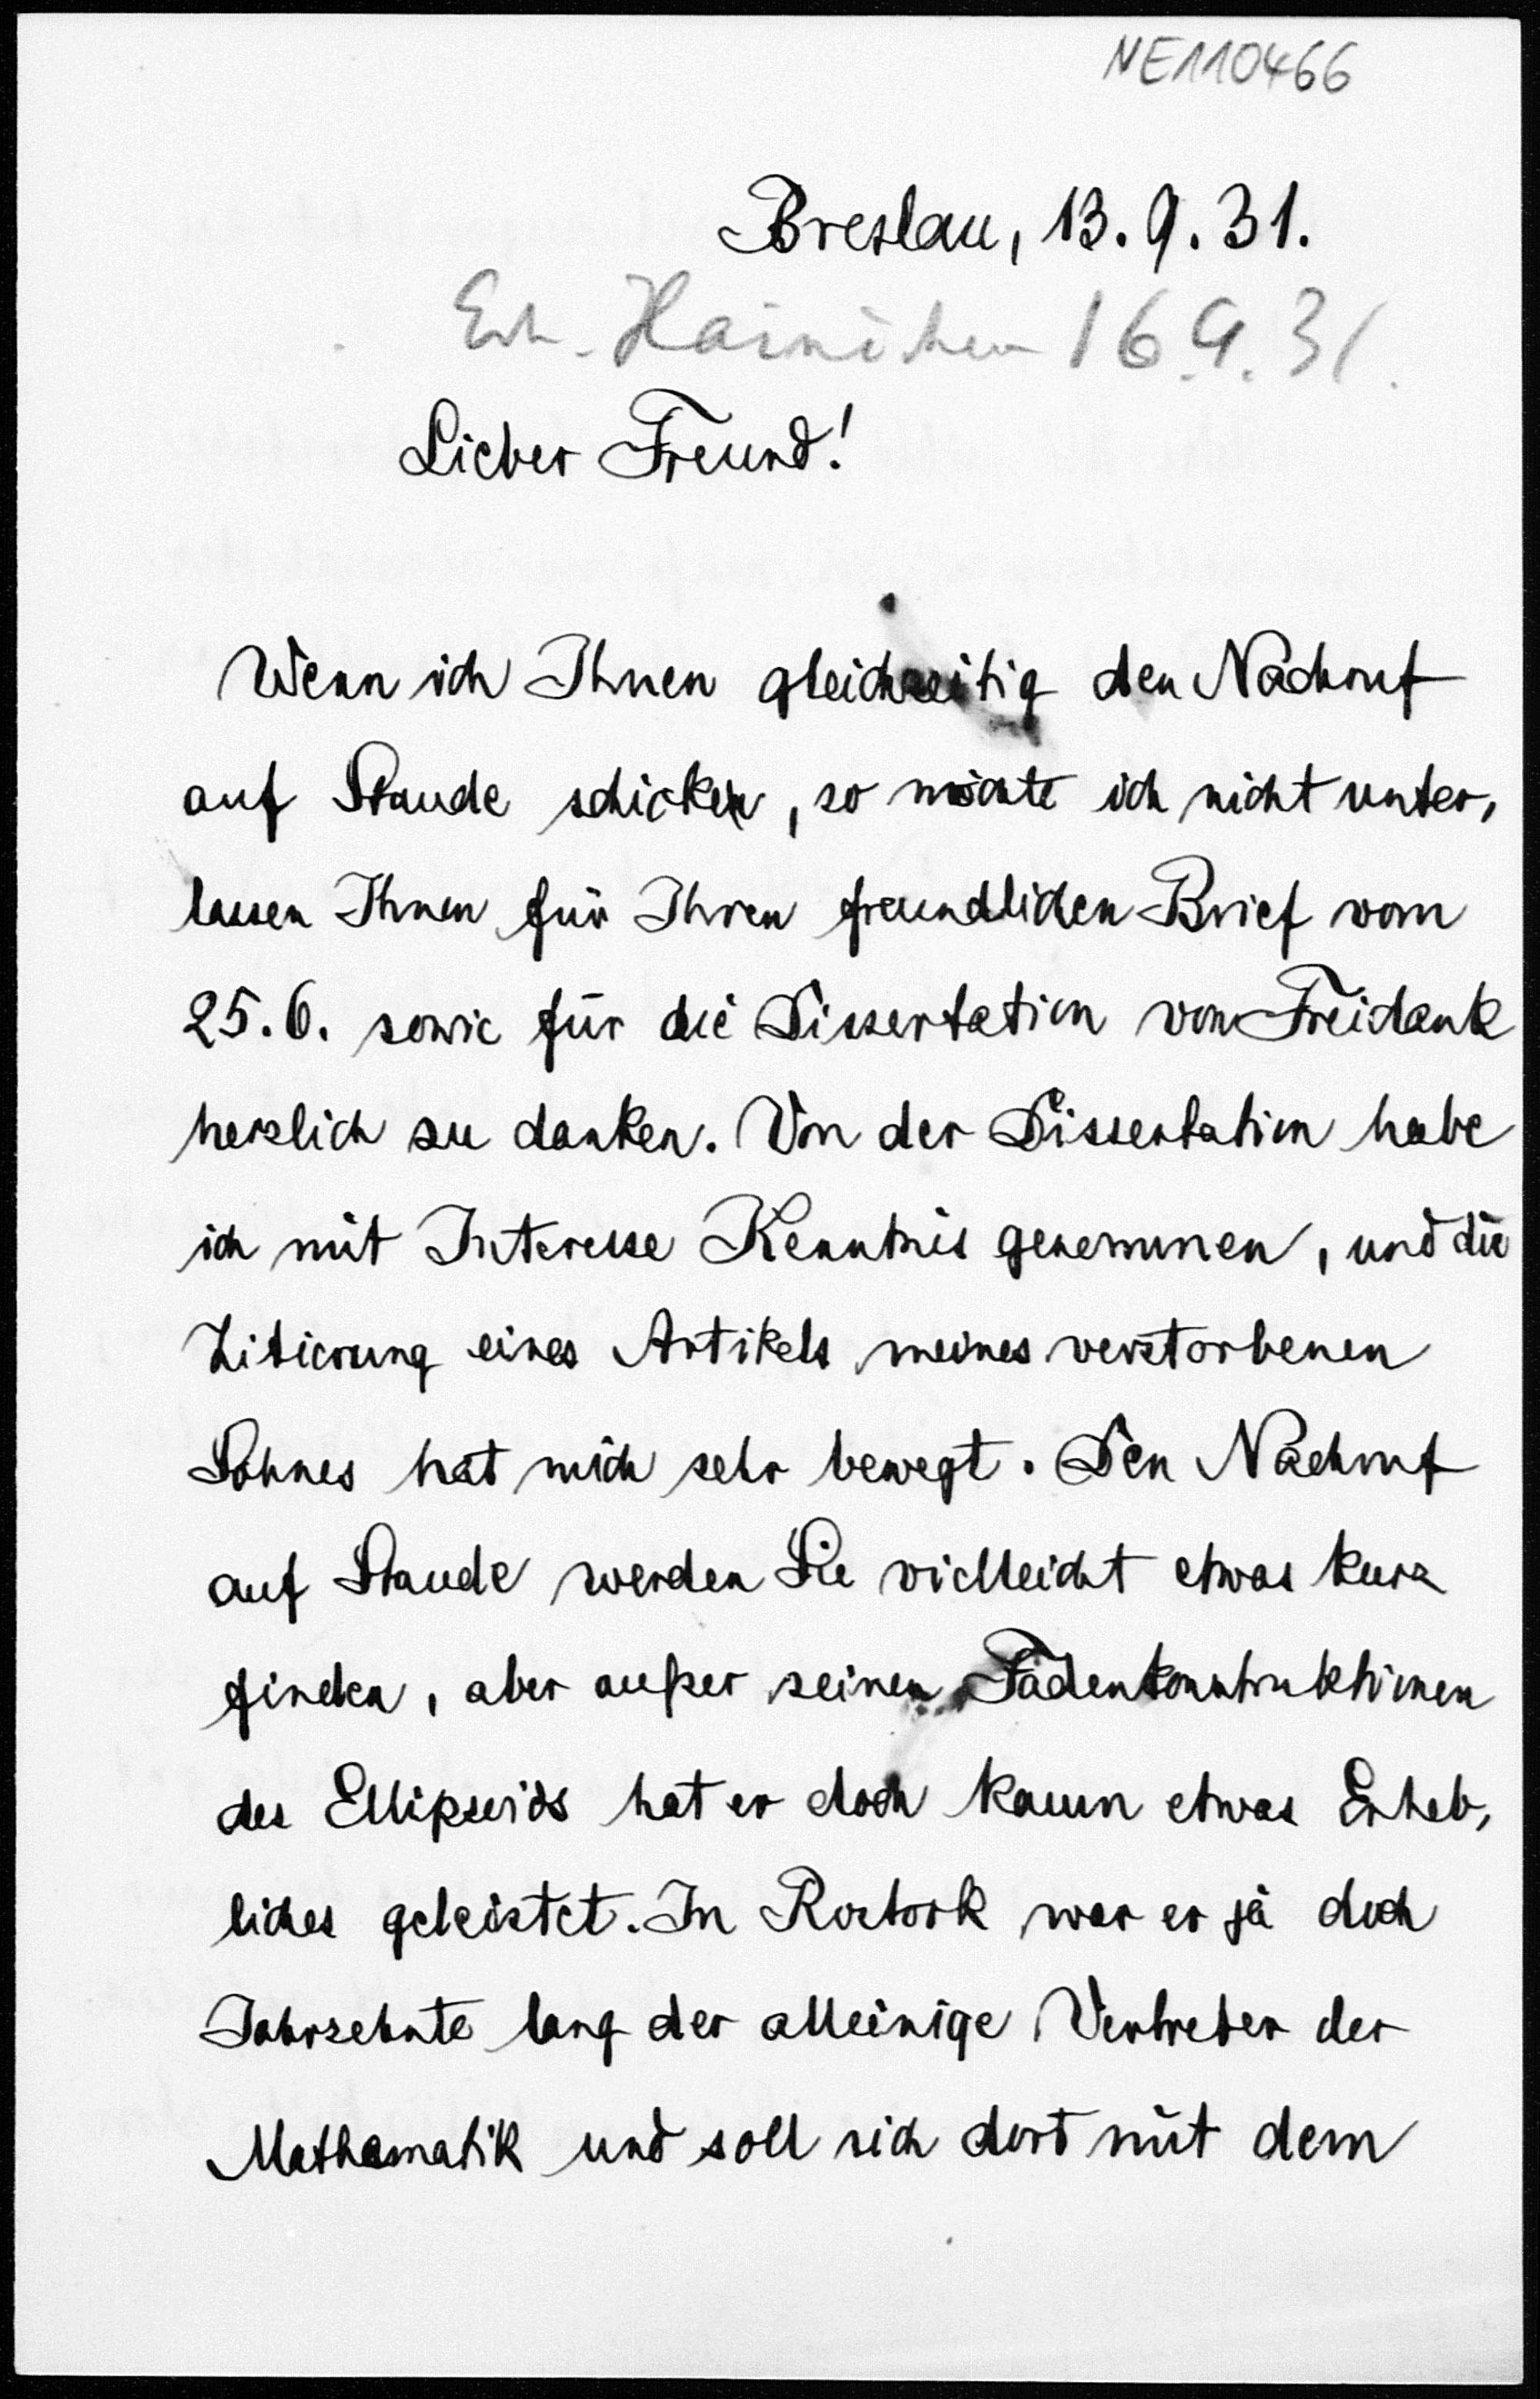 NE110466
Breslau, 13. 9. 31.
Erh. Hainichen 16.9.31.
Lieber Freund!
Wenn ich Ihnen gleichzeitig den Nachruf
auf Staude schicke, so möchte ich nicht unter,
lassen Ihnen für Ihren freundlichen Brief vom
25. 6. sowie für die Dissertation von Freidank
herzlich zu danken. Von der Dissertation habe
ich mit Interesse Kenntnis genommen, und die
Zitierung eines Artikels meines verstorbenen
Sohnes hat mich sehr bewegt. Den Nachruf
auf Staude werden Sie vielleicht etwas kurz
finden, aber außer seinen Fadenkonstruktionen
des Ellipsoids hat er doch kaum etwas Erheb,
liches geleistet. In Rostock war er ja doch
Jahrzehnte lang der alleinige Vertreter der
Mathematik und soll sich dort mit dem